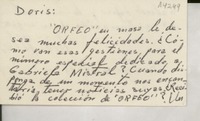 Doris:
"ORFEO" en masa le de-
sea muchas felicidades. ¿Có-
mo van esas gestiones para el
número especial dedicado a
Gabriela Mistral? Cuando dis-
ponga de un momento nos encan-
taría tener noticias suyas. ¿Reci-
bió la colección de "ORFEO"? ¡Un